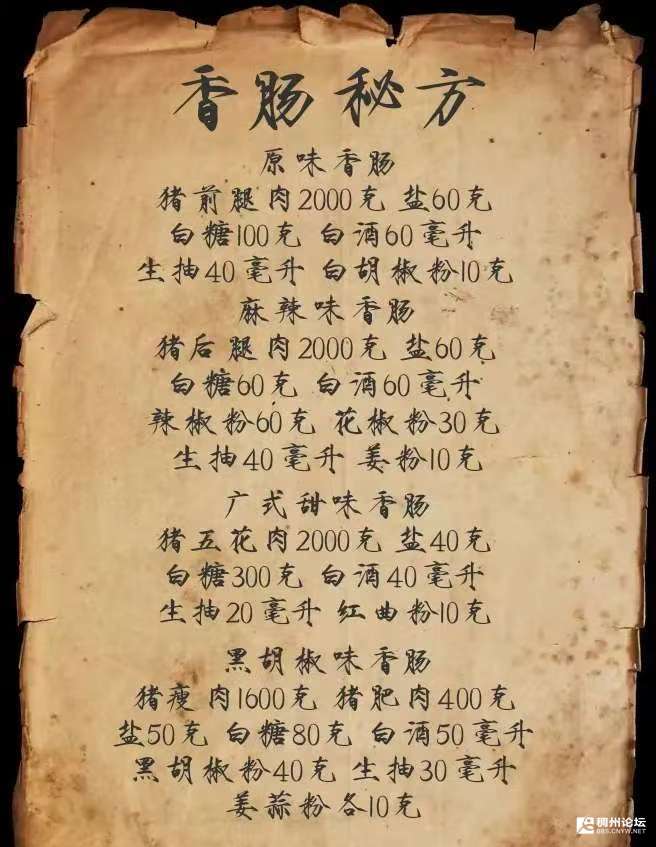 香肠秘方
原味香肠
猪前腿肉2000克 盐60克
白糖100克 白酒60毫升
生抽40毫升 白胡椒粉10克
麻辣味香肠
猪后腿肉2000克 盐60克
白糖60克 白酒60毫升
辣椒粉60克 花椒粉30克
生抽40毫升 姜粉10克
广式甜味香肠
猪五花肉2000克 盐40克
白糖300克 白酒40毫升
生抽20毫升 红曲粉10克
黑胡椒味香肠
猪瘦肉1600克 猪肥肉400克
盐50克 白糖80克 白酒50毫升
黑胡椒粉40克 生抽30毫升
姜蒜粉各10克
稠州论坛
BBS.CNYW.NET